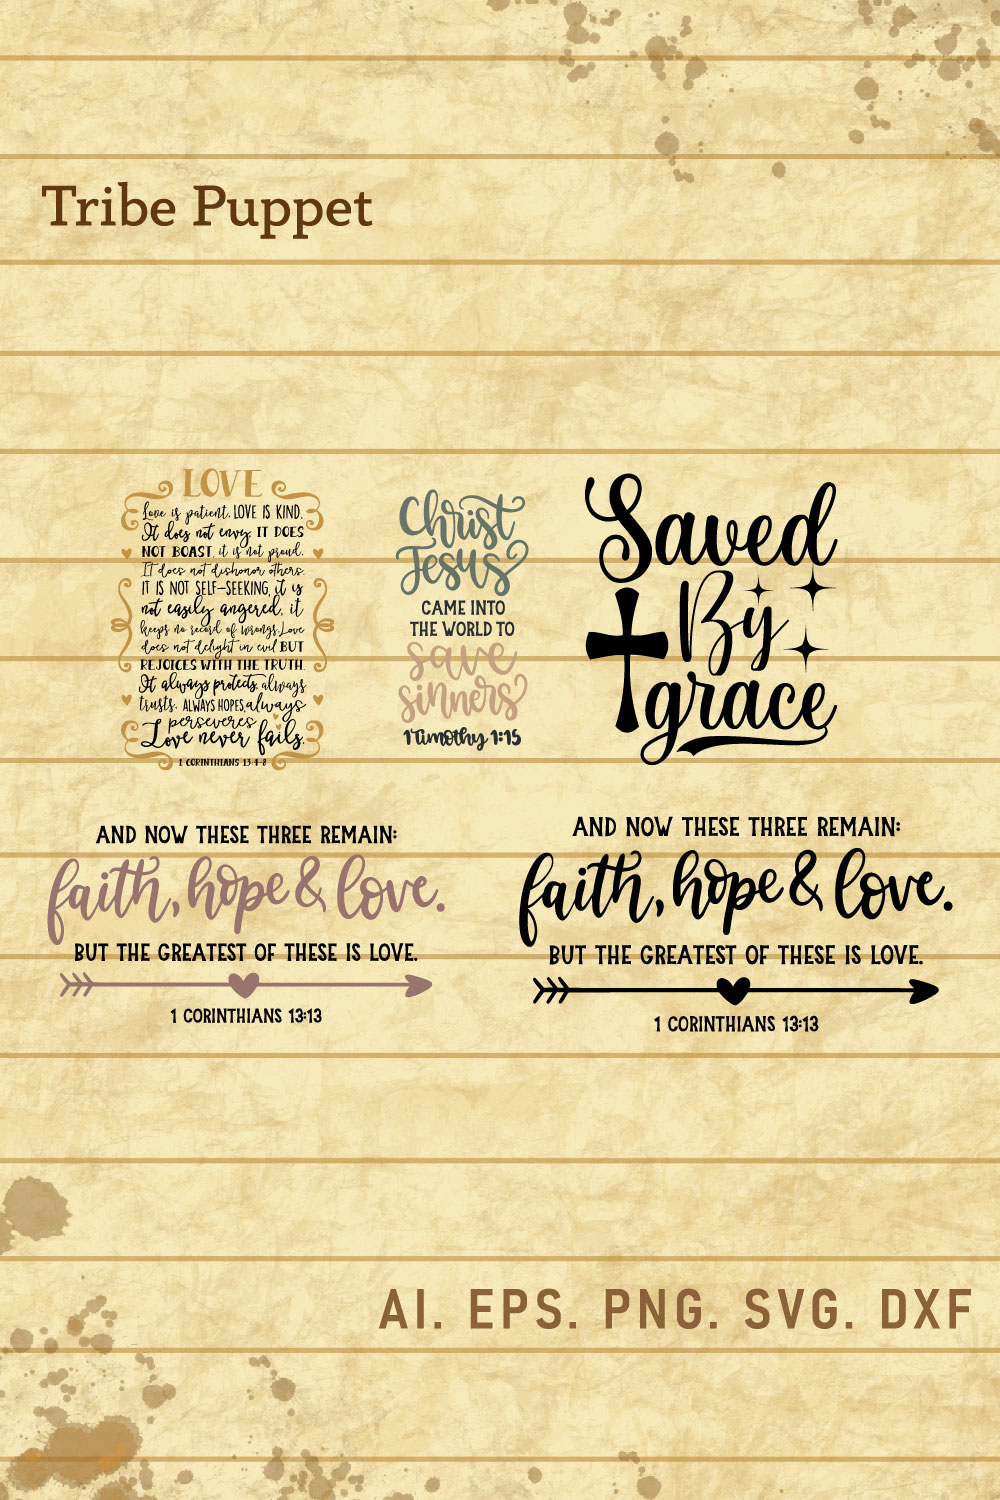 Tribe Puppet
LOVE
Love is patient, LOVE IS KIND.
It does not envy, IT DOES
NOT BOAST, it is not proud.
IT does not dishonor others,
IT IS NOT SELF-SEEKING, it is
not easily angered, it
keeps no record of wrongs. Love
does not delight in evil BUT
REJOICES WITH THE TRUTH.
It always protects, always
trusts, ALWAYS HOPES, always
perseveres
Love never fails.
1 CORINTHIANS 13:4-8
Christ
Jesus
CAME INTO
THE WORLD TO
save
sinners
1 Timothy 1:15
Saved
By
grace
AND NOW THESE THREE REMAIN:
faith, hope & love.
BUT THE GREATEST OF THESE IS LOVE.
1 CORINTHIANS 13:13
AND NOW THESE THREE REMAIN:
faith, hope & love.
BUT THE GREATEST OF THESE IS LOVE.
1 CORINTHIANS 13:13
AI. EPS. PNG. SVG. DXF